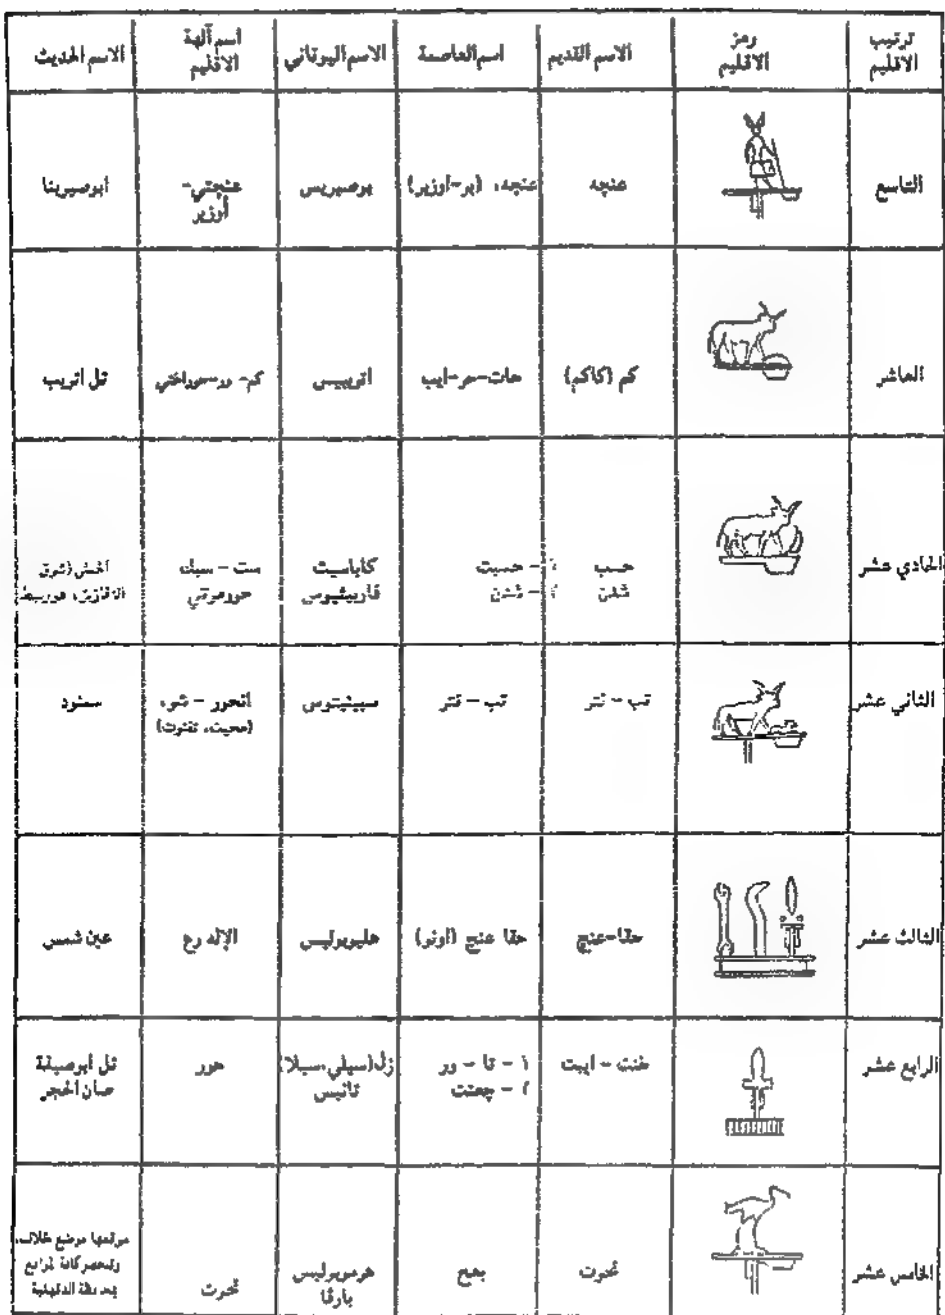 ترتيب الاقليم | رمز الاقليم | الاسم القديم | اسم العاصمة | الاسم اليوناني | اسم آلهة الاقليم | الاسم الحديث
التاسع | عنجه | عنجه، (بر-أوزير) | بوصيريس | عنجتي- أوزير | ابوصيربنا
العاشر | كم (كاكم) | حات-حر-ايب | اتريبيس | كم- ور-حوراختي | تل اتريب
الحادي عشر | حسب شدن | ١ - حسبت ٢ - شدن | كاباسيت فاربيثيوس | ست - سبك، حورمرتي | (شرق الزقازيق، هوربيط)
الثاني عشر | تب - نتر | تب - نتر | سبينيتوس | انحور - شو، (محيت، تفنوت) | سمنود
الثالث عشر | حقا-عنج | حقا عنج (اونو) | هليوبوليس | الإله رع | عين شمس
الرابع عشر | خنت - ايبت | ١ - تا - ور ٢ - جعنت | زل(سيلي،سيلا) تانيس | حور | تل ابوصيفة صان الحجر
الخامس عشر | تحوت | بعح | هرموبوليس بارفا | تحوت | موقعها موضع خلاف، وتنحصر كافة المواقع بمحافظة الدقهلية